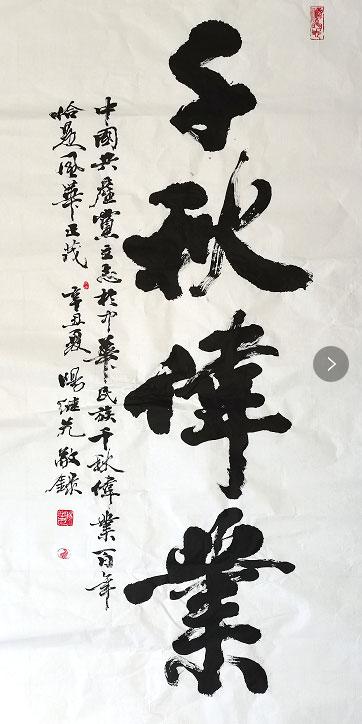 千秋偉業
中國共產黨立志於中華民族千秋偉業百年
恰是風華正茂 辛丑夏 陽继先敬錄